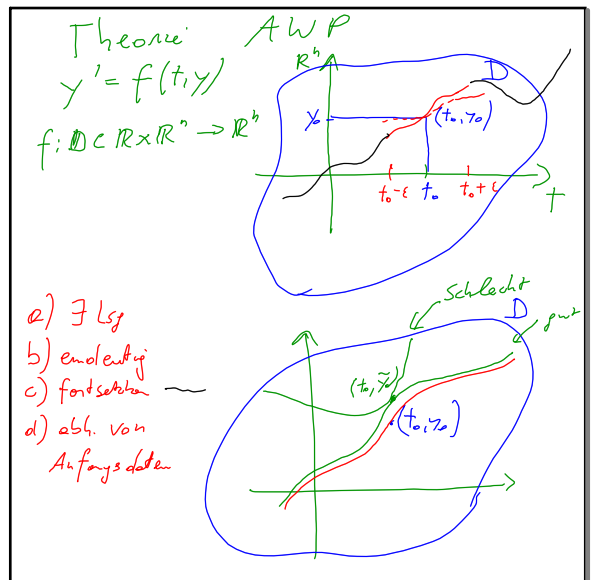 Theorie AWP
y' = f(t,y)
f: D ⊂ ℝ×ℝⁿ → ℝⁿ
ℝⁿ
D
y₀
(t₀,y₀)
t₀-ε t₀ t₀+ε
t
a) ∃ Lsg
b) eindeutig
c) fortsetzbar
d) abh. von
Anfangsdaten
schlecht
D
gut
(t₀,ỹ₀)
(t₀,y₀)